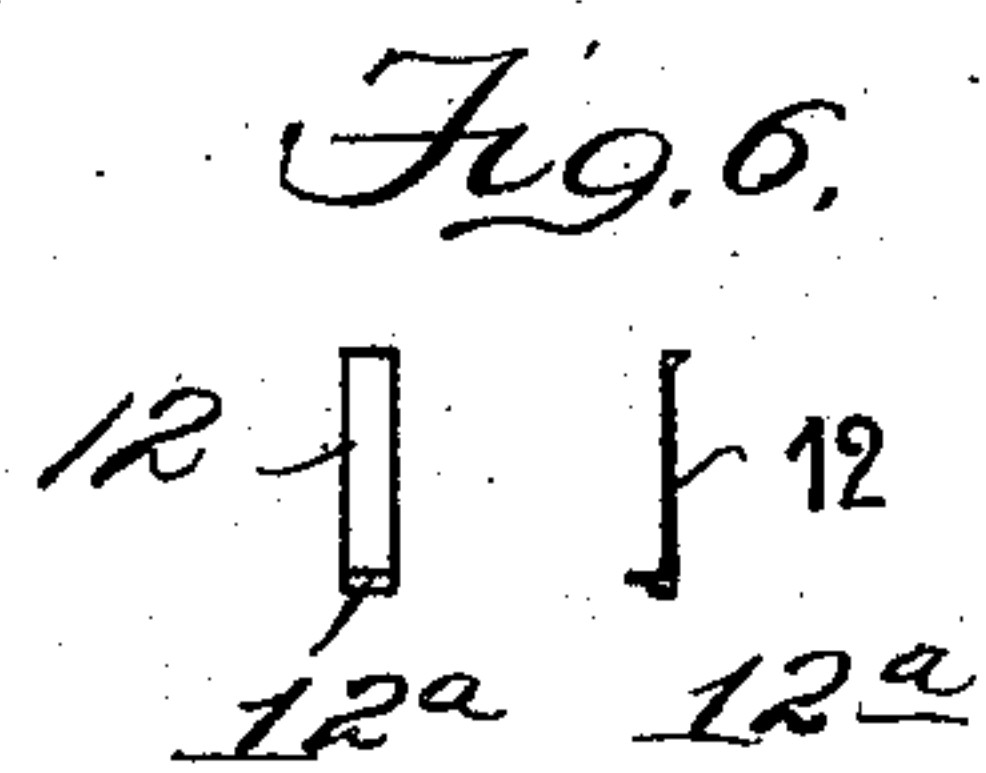 Fig. 6.
12 12
12a 12a